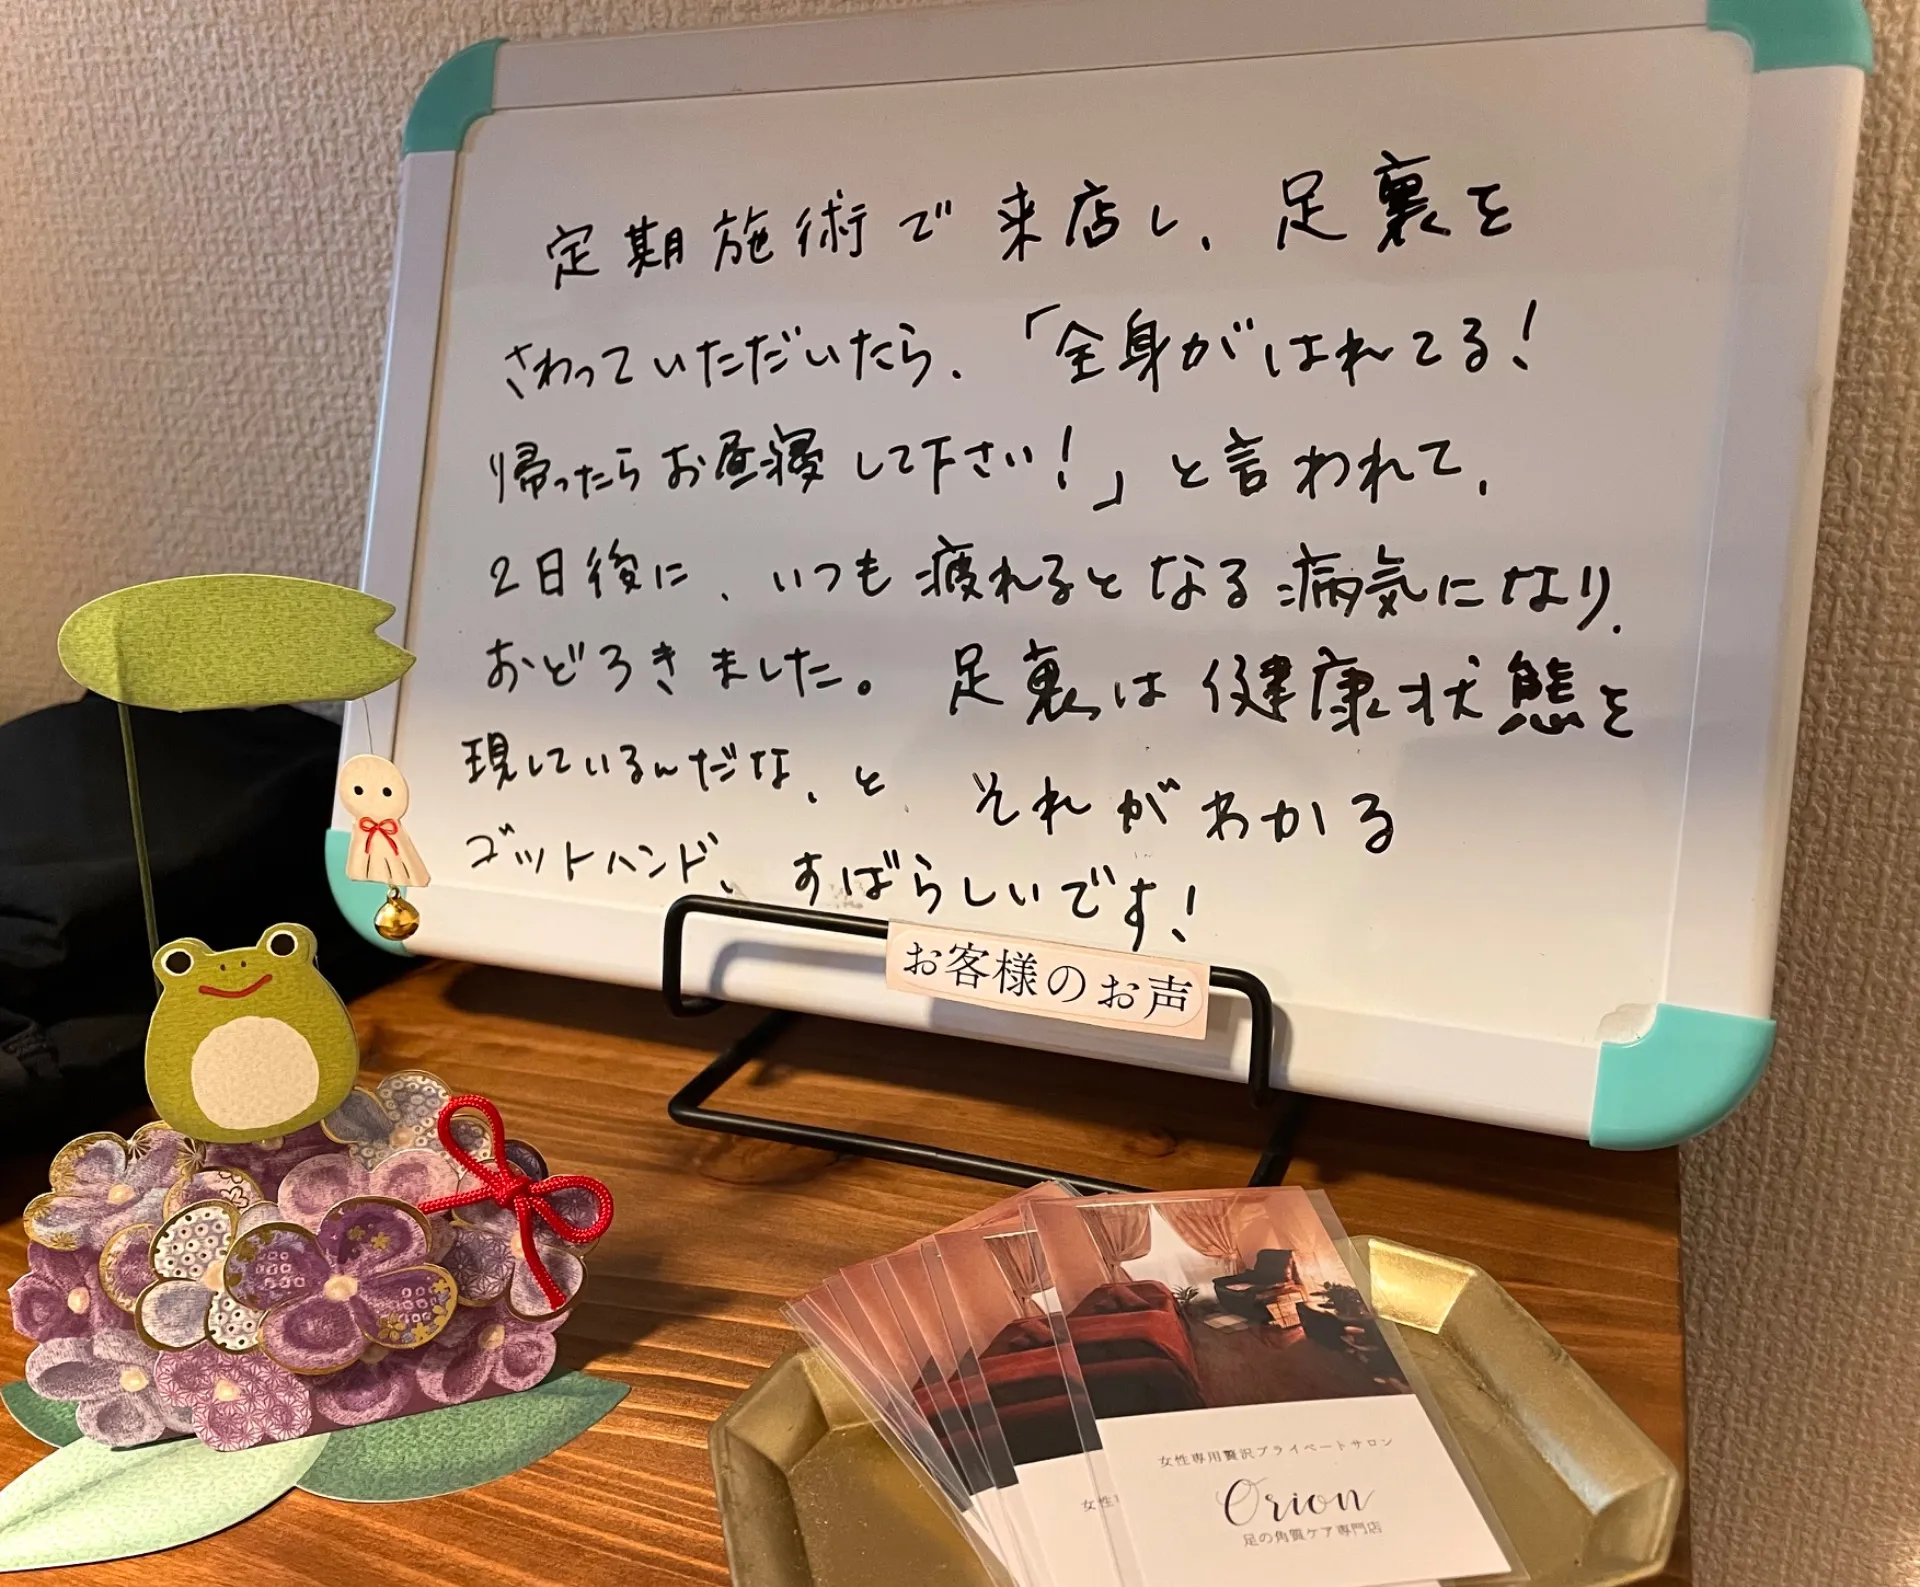 定期施術で来店し、足裏を
さわっていただいたら、「全身がはれてる!
帰ったらお昼寝して下さい!」と言われて、
2日後に、いつも疲れるとなる病気になり、
おどろきました。足裏は健康状態を
現しているんだな、と、それがわかる
ゴットハンド、すばらしいです!
お客様のお声
女性専用贅沢プライベートサロン
Orion
足の角質ケア専門店
女性